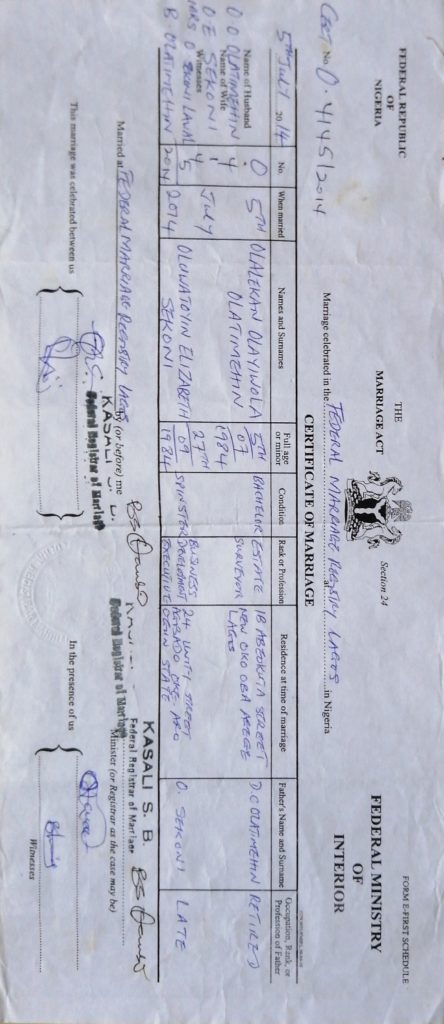 FORM E-FIRST SCHEDULE
FEDERAL REPUBLIC
OF
NIGERIA
THE
MARRIAGE ACT
Section 24
FEDERAL MINISTRY
OF
INTERIOR
CERT No 0.4145/2014
Marriage celebrated in the FEDERAL MARRIAGE REGISTRY LAGOS at in Nigeria
CERTIFICATE OF MARRIAGE
5TH JULY 2014
No. When married Names and Surnames Full age or minor Condition Rank or Profession Residence at time of marriage Father's Name and Surname Occupation, Rank, or Profession of Father
Name of Husband
O O OLATIMEHIN
Name of Wife
O E SEKONI
Witnesses
MRS O SEKONI LAWAL
B OLATIMEHIN
0
4
1
4
5
2014
5TH
JULY
2014
OLALEKAN OLAYIWOLA
OLATIMEHIN
5TH
07
1984
BACHELOR
ESTATE
SURVEYOR
1B ABEOKUTA STREET
NEW OKO OBA AGEGE
LAGOS
D O OLATIMEHIN
RETIRED
OLUWATOYIN ELIZABETH
SEKONI
27TH
09
1984
SPINSTER
BUSINESS
DEVELOPMENT
EXECUTIVE
24 UNITY STREET
OGUN STATE
O. SEKONI
LATE
Married at FEDERAL MARRIAGE REGISTRY LAGOS by (or before) me
KASALI S. B.
Federal Registrar of Marriage
KASALI S. B.
Federal Registrar of Marriage
Federal Registrar of Marriage
Minister (or Registrar as the case may be)
This marriage was celebrated between us
In the presence of us
Witnesses